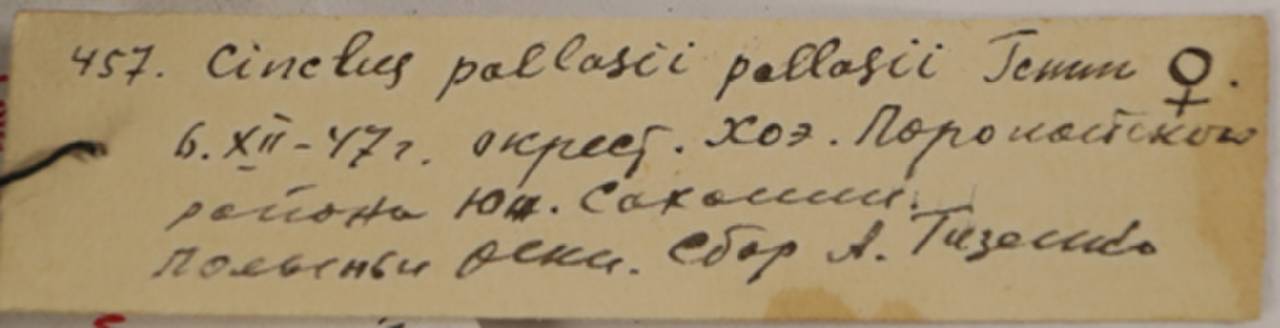 457. Cinclus pallasii pallasii Temm ♀.
6.XII-47г. окрест. Хоэ. Поронайского
района Юж. Сахалин.
Полыньи реки. Сбор А. Гизенко